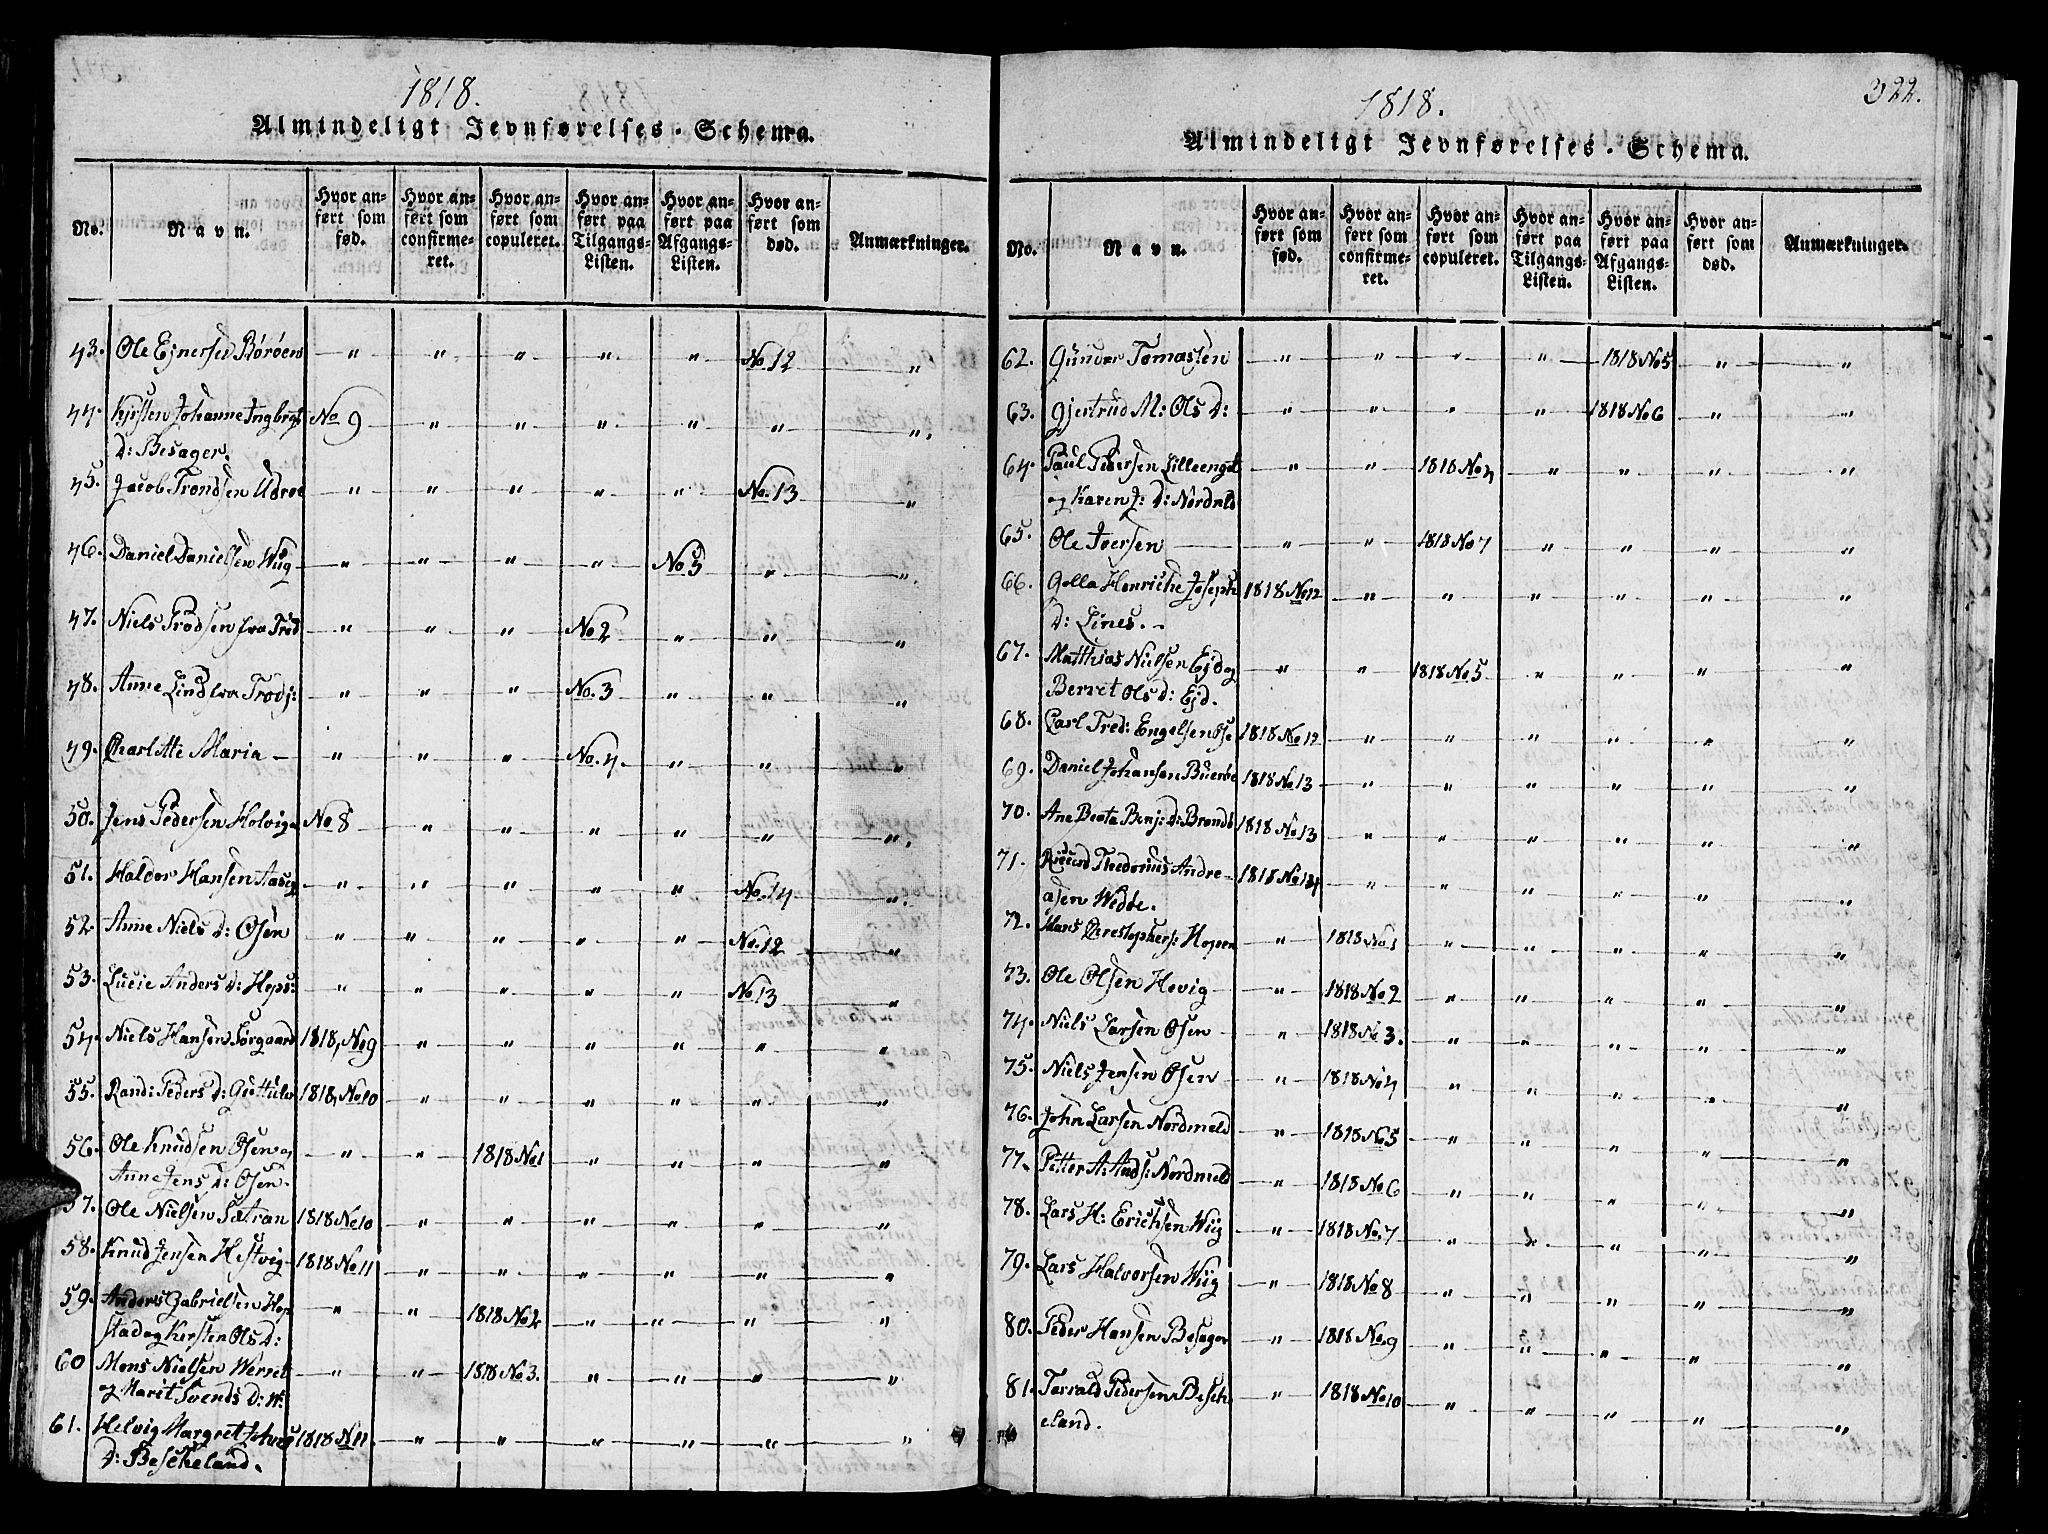 1818.
Almindeligt Jevnførelses-Schema.
No. Navn. Hvor anført som fød. Hvor anført som confirmeret. Hvor anført som copuleret. Hvor anført paa Tilgangs-Listen. Hvor anført paa Afgangs-Listen. Hvor anført som død. Anmærkninger.
43. Ole Ejnersen Børøen " " " " " No. 12 "
44. Kirsten Johanne Ingbrgts No 9 " " " " " "
D: Besager.
45. Jacob Trondsen Udroe " " " " " No. 13 "
46. Daniel Danielsen Wiig " " " " No 5 " "
47. Niels Trodsen fra Trod " " " No 2 " " "
48. Anne Lind fra Trods: " " " No. 3 " " "
49. Charlotte Maria " " " No. 4. " " "
50. Jens Pedersen Holvig No 8 " " " " " "
51. Haldor Hansen Aaseg " " " " " No. 14 "
52. Anne Niels D: Osen " " " " " No. 12 "
53. Lucie Anders D: Hops: " " " " " No 13 "
54. Niels Hansen Sørgaard 1818, No 9 " " " " " "
55. Rand: Peders D: 1818, No 10 " " " " " "
56. Ole Knudsen Osen og " " 1818 No 1 " " " "
Anne Jens D: Osen.
57. Ole Nielsen Sætran 1818 No 10 " " " " " "
58. Knud Jensen Hestvig 1818 No 11 " " " " " "
59. Anders Gabrielsen Hop " " 1818 No 2 " " " "
stad og Kersten Ols D:
60 Mons Nielsen Werret " " 1818 No 3. " " " "
og Marit Svends D: W:
61. Helvig Margret Johns 1818 No 11. " " " " " "
D: Bescheland.
322.
1818.
Almindeligt Jevnførelses-Schema.
No. Navn. Hvor anført som fød. Hvor anført som confirmeret. Hvor anført som copuleret. Hvor anført paa Tilgangs-Listen. Hvor anført paa Afgangs-Listen. Hvor anført som død. Anmærkninger.
62. Gunder Tomassen " " " " 1818 No 5 " "
63. Gjertrud M: Ols D: " " " " 1818 No 6 " "
64. Paul Pedersen Lilleenget " " 1818 No 4 " " " "
og Karen J: D: Nordmeld
65. Ole Iversen " " 1818 No 7 " " " "
66. Golla Henriche Joseph 1818 No 12 " " " " " "
D: Lines.
67. Matthias Nielsen Ejd og " " 1818 No. 5 " " " "
Berret Ols D: Ejd.
68. Carl Fred: Engelsen Ose 1818 No 12 " " " " " "
69. Daniel Johansen Buenbe 1818 No 13 " " " " " "
70. Ane Beata Benj: D: Brands 1818 No 13 " " " " " "
71. Theodorius Andre- 1818 No 14 " " " " " "
asen Wedbe.
72. Hans Christophers: Hopen " 1818 No 1 " " " " "
73. Ole Olsen Hevig " 1818 No 2 " " " " "
74. Niels Larsen Osen " 1818 No 3. " " " " "
75. Niels Jensen Osen " 1818 No 4 " " " " "
76. John Larsen Nordmeld " 1818 No 5 " " " " "
77. Petter A: Ands: Nordmeld " 1818 No 6 " " " " "
78. Lars H: Erichsen Wiig " 1818 No. 7 " " " " "
79. Lars Halvorsen Wiig " 1818 No 8 " " " " "
80. Peder Hansen Besager " 1818 No. 9 " " " " "
81. Torrald Pedersen Besch " 1818 No 10 " " " " "
eland.